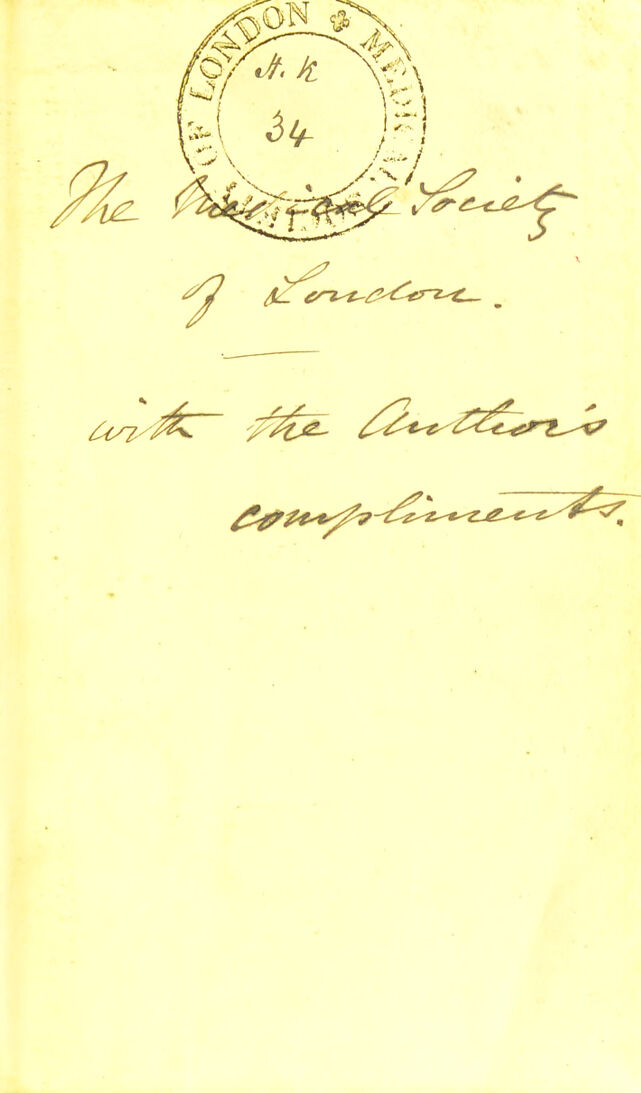 MEDICAL SOCIETY OF LONDON
A. K
34
The Medical Society
of London.
with the Author's
compliments.